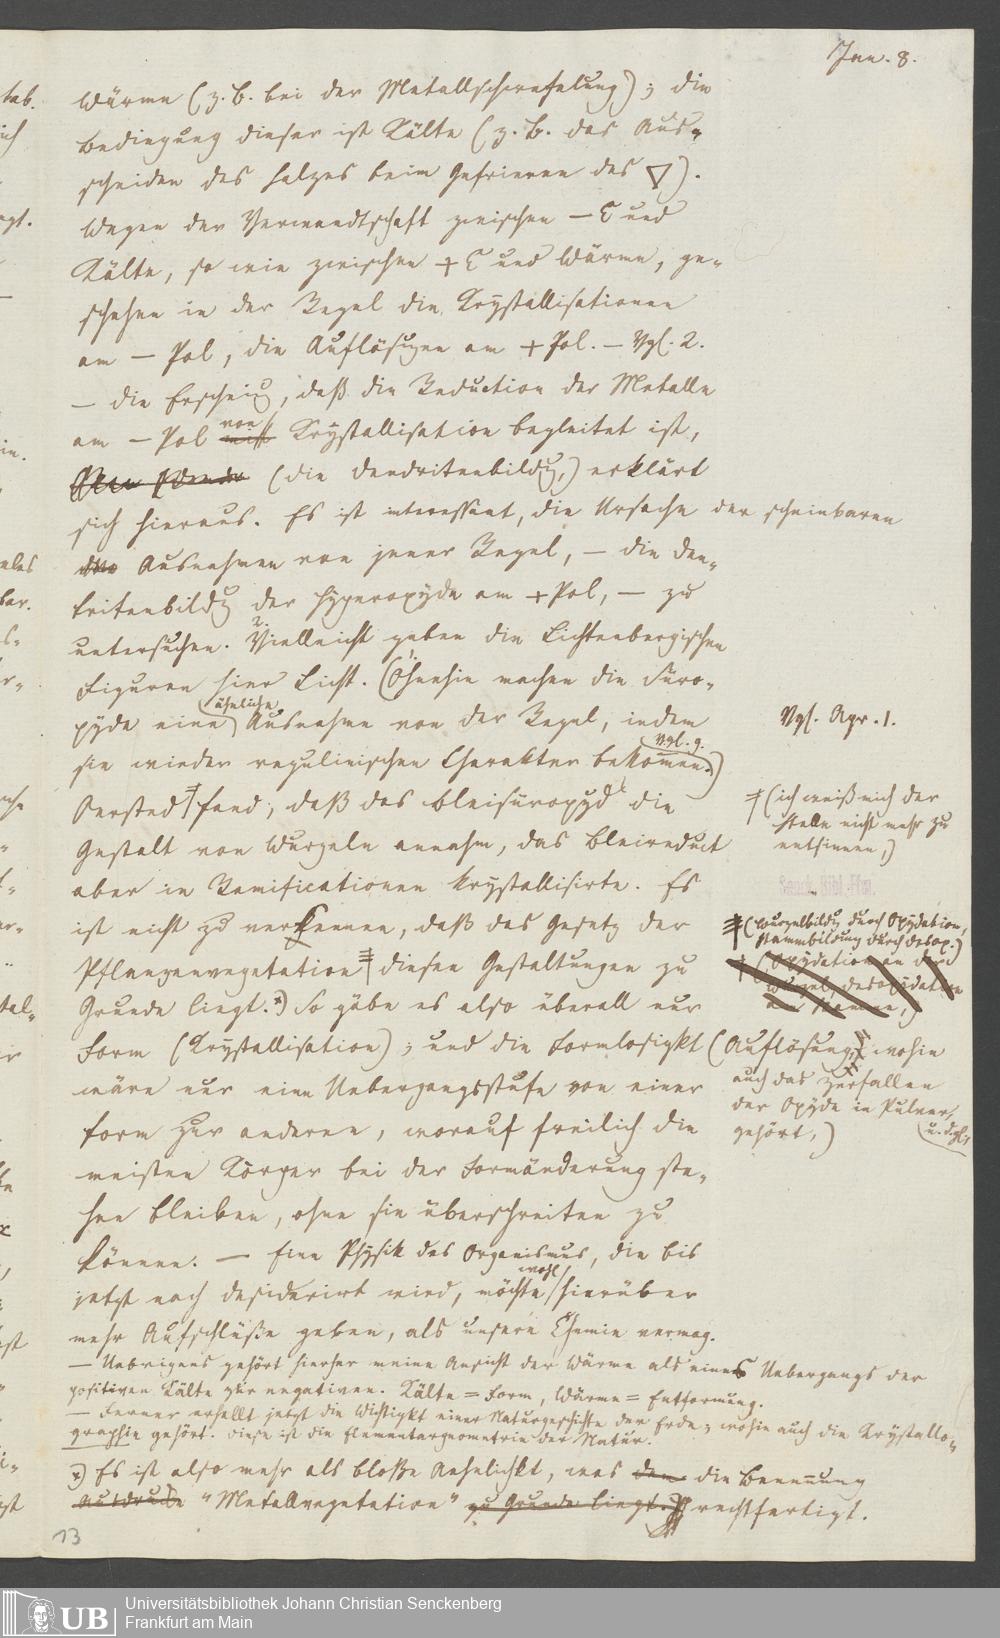 Jan. 8.
Wärme (z. B. bei der Metallschwefelung); die
Bedingung dieser ist Kälte (z. B. das Aus-
scheiden des Salzes beim Gefrieren des ▽).
Wegen der Verwandtschaft zwischen — E und
Kälte, so wie zwischen + E und Wärme, ge-
schehen in der Regel die Krystallisationen
am — Pol, die Auflösungen am + Pol. — Vgl. 2.
— die Erscheinung, daß die Reduction der Metalle
am — Pol von Krystallisation begleitet ist,
(die Dendritenbildung,) erklärt
sich hieraus. Es ist interessant, die Ursache der scheinbaren
Ausnahmen von jener Regel, — die Den-
dritenbildung der Hyperoxyde am + Pol, — zu
untersuchen. Vielleicht geben die Lichtenbergischen
Figuren hier Licht. (Ohnehin machen die
oxyde eine ähnliche Ausnahme von der Regel, indem
sie wieder regulinischen Charakter bekommen. Vgl. 9.)
Vgl. Apr. 1.
Oersted fand, daß das die
Gestalt von Wurzeln annahm, das Bleireduct
aber in Ramificationen krystallisirte. Es
ist nicht zu verkennen, daß das Gesetz der
Pflanzenvegetation diesen Gestaltungen zu
Grunde liegt.*) So gäbe es also überall nur
Form (Krystallisation); und die Formlosigkt (Auflösung, wohin
wäre nur eine Uebergangsstufe von einer
Form zur anderen, worauf freilich die
meisten Körper bei der Formänderung ste-
hen bleiben, ohne sie überschreiten zu
können. — Eine Physik des Organismus, die bis
jetzt noch desiderirt wird, möchte wohl hierüber
mehr Aufschlüße geben, als unsere Chemie vermag.
— Uebrigens gehört hierher meine Ansicht der Wärme als eines Uebergangs der
positiven Kälte zur negativen. Kälte = Form, Wärme = Entformung.
— Ferner erhellt jetzt die Wichtigkt einer Naturgeschichte der Erde; wohin auch die Krystallo-
graphie gehört. Diese ist die Elementargeometrie der Natur.
*) Es ist also mehr als bloße Aehnlichkt, was die Benennung
"Metallvegetation" zu Grunde liegt. rechtfertigt.
(ich weiß mich der
Stelle nicht mehr zu
entsinnen,)
(Wurzelbildung durch Oxydation,
Stammbildung durch Desox.)
auch das Zerfallen
der Oxyde in Pulver,
u. dgl.,
gehört,)
13
UB
Universitätsbibliothek Johann Christian Senckenberg
Frankfurt am Main